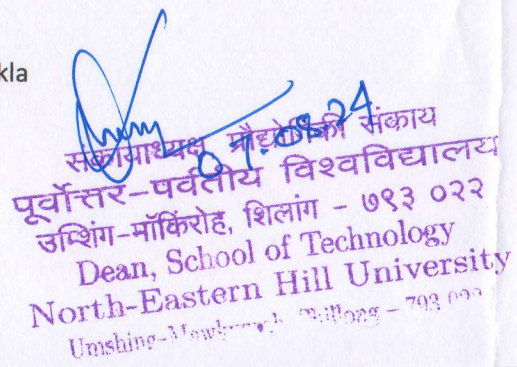 kla
07.08.24
संकायाध्यक्ष प्रौद्योगिकी संकाय
पूर्वोत्तर-पर्वतीय विश्वविद्यालय
उम्शिंग-मॉकिंरोह, शिलांग - ७९३ ०२२
Dean, School of Technology
North-Eastern Hill University
Umshing- Shillong - 793